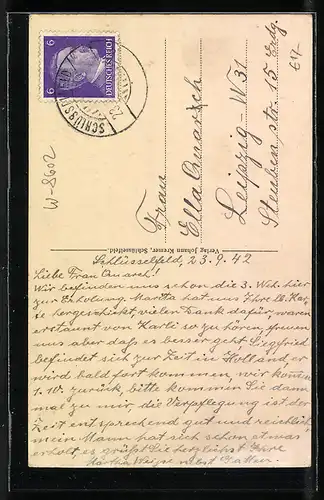 6 DEUTSCHES REICH 6
SCHLÜSSELFELD
23
W-8602
Frau
Ella Anarsch
Leipzig-W31
Steubenstr. 15 Erdg.
Verlag Johann Kremer, Schlüsselfeld.
Schlüsselfeld, 23.9.42
Liebe Frau Anarch!
Wir befinden uns schon die 3. Woh. hier
zur Erholung. Marita hat uns Ihre lb. Kar-
te hergeschickt, vielen Dank dafür, waren
erstaunt von Karli so zu hören, freuen
uns aber daß es besser geht. Siegfried
befindet sich zur Zeit in Holland er
wird bald fort kommen, wir kommen
1.10. zurück, bitte kommen Sie dann
mal zu mir, die Verpflegung ist der
Zeit entsprechend gut und reichlich,
mein Mann hat sich schon etwas
erholt, es grüßt Sie herzlichst Ihre
nebst Gatten.